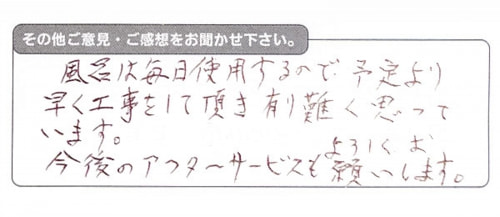 その他ご意見・ご感想をお聞かせ下さい。
風呂は毎日使用するので予定より
早く工事をして頂き有り難く思って
います。
今後のアフターサービスもよろしくお
願いします。